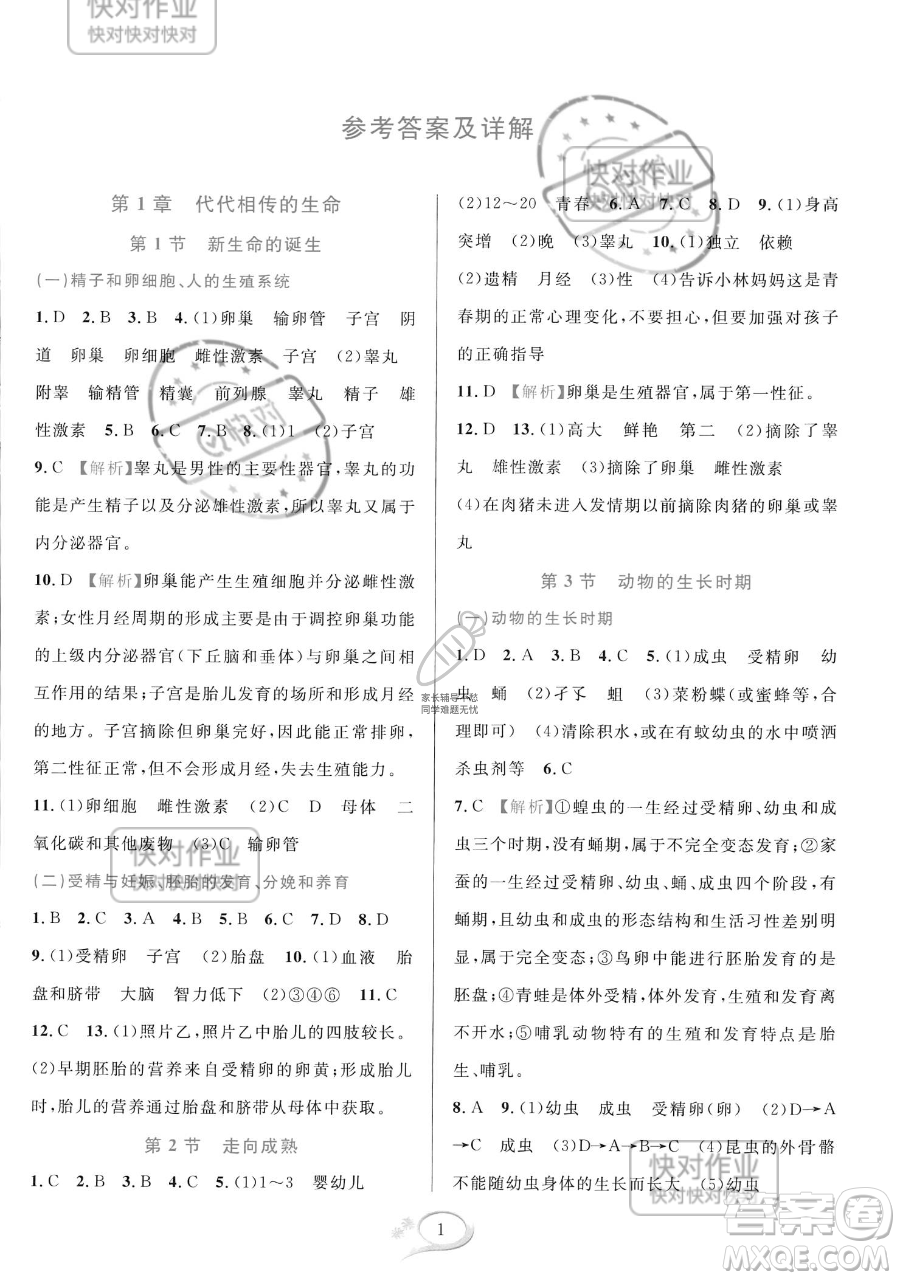 快对作业
快对快对快对
参考答案及详解
快对作业
快对快对快对
第1章 代代相传的生命
第1节 新生命的诞生
(一)精子和卵细胞、人的生殖系统
1.D 2.B 3.B 4.(1)卵巢 输卵管 子宫 阴
道 卵巢 卵细胞 雌性激素 子宫 (2)睾丸
附睾 输精管 精囊 前列腺 睾丸 精子 雄
性激素 5.B 6.C 7.B 8.(1)1 (2)子宫
9.C 【解析】睾丸是男性的主要性器官,睾丸的功
能是产生精子以及分泌雄性激素,所以睾丸又属于
内分泌器官。
10.D 【解析】卵巢能产生生殖细胞并分泌雌性激
素;女性月经周期的形成主要由于调控卵巢功能
的上级内分泌器官(下丘脑和垂体)与卵巢相互
作用的结果;子宫是胎儿发育的场所和形成月经
的地方。子宫摘除但卵巢完好,因此能正常排卵,
第二性征正常,但不能形成月经,失去生殖能力。
11.(1)卵细胞 雌性激素 (2)C D 母体 二
氧化碳和其他废物 (3)C 输卵管
快对作业
快对快对快对
(二)受精与妊娠、胚胎的发育、分娩和养育
1.B 2.C 3.A 4.B 5.B 6.D 7.D 8.D
9.(1)受精卵 子宫 (2)胎盘 10.(1)血液 胎
盘和脐带 大脑 智力低下 (2)③④⑥ 11.C
12.C 13.(1)照片乙,照片乙中胎儿的四肢较长。
(2)早期胚胎的营养来自受精卵的卵黄;形成胎儿
时,胎儿的营养通过胎盘和脐带从母体中获取。
第2节 走向成熟
1.C 2.B 3.A 4.C 5.(1)1～3 婴幼儿
(2)12～20 青春 6.A 7.C 8.D 9.(1)身高
突增 (2)晚 (3)睾丸 10.(1)独立 依赖
(2)遗精 月经 (3)性 (4)告诉小林妈妈这是青
春期的正常心理变化,不要担心,但要加强对孩子
的正确指导
11.D 【解析】卵巢是生殖器官,属于第一性征。
12.D 13.(1)高大 鲜艳 第二 (2)摘除了睾
丸 雄性激素 (3)摘除了卵巢 雌性激素
(4)在肉猪未进入发情期以前摘除肉猪的卵巢或睾
丸
第3节 动物的生长时期
(一)动物的生长时期
1.D 2.A 3.A 4.C 5.(1)成虫 受精卵 幼
虫 蛹 (2)孑孓 蛆 (3)菜粉蝶(或蜜蜂等,合
理即可) (4)清除积水,或在有幼虫的水中喷洒
杀虫剂等 6.C
家长辅导不愁
同学难题无忧
7.C 【解析】①蝗虫的一生经过受精卵、幼虫和成
虫三个时期,没有蛹期,属于不完全变态发育;②家
蚕的一生经过受精卵、幼虫、蛹、成虫四个阶段,有
蛹期,且幼虫和成虫的形态结构和生活习性差别明
显,属于完全变态;③鸟卵中能进行胚胎发育的是
胚盘;④青蛙是体外受精,体外发育,生殖和发育离
不开水;⑤哺乳动物特有的生殖和发育特点是胎
生、哺乳。
8.A 9.(1)幼虫 成虫 受精卵(卵) (2)D→A
→C 成虫 (3)D→A→B→C (4)昆虫的外骨骼
不能随幼虫身体的生长而长大 (5)幼虫
快对作业
快对快对快对
1
答案圈
MXQE.COM